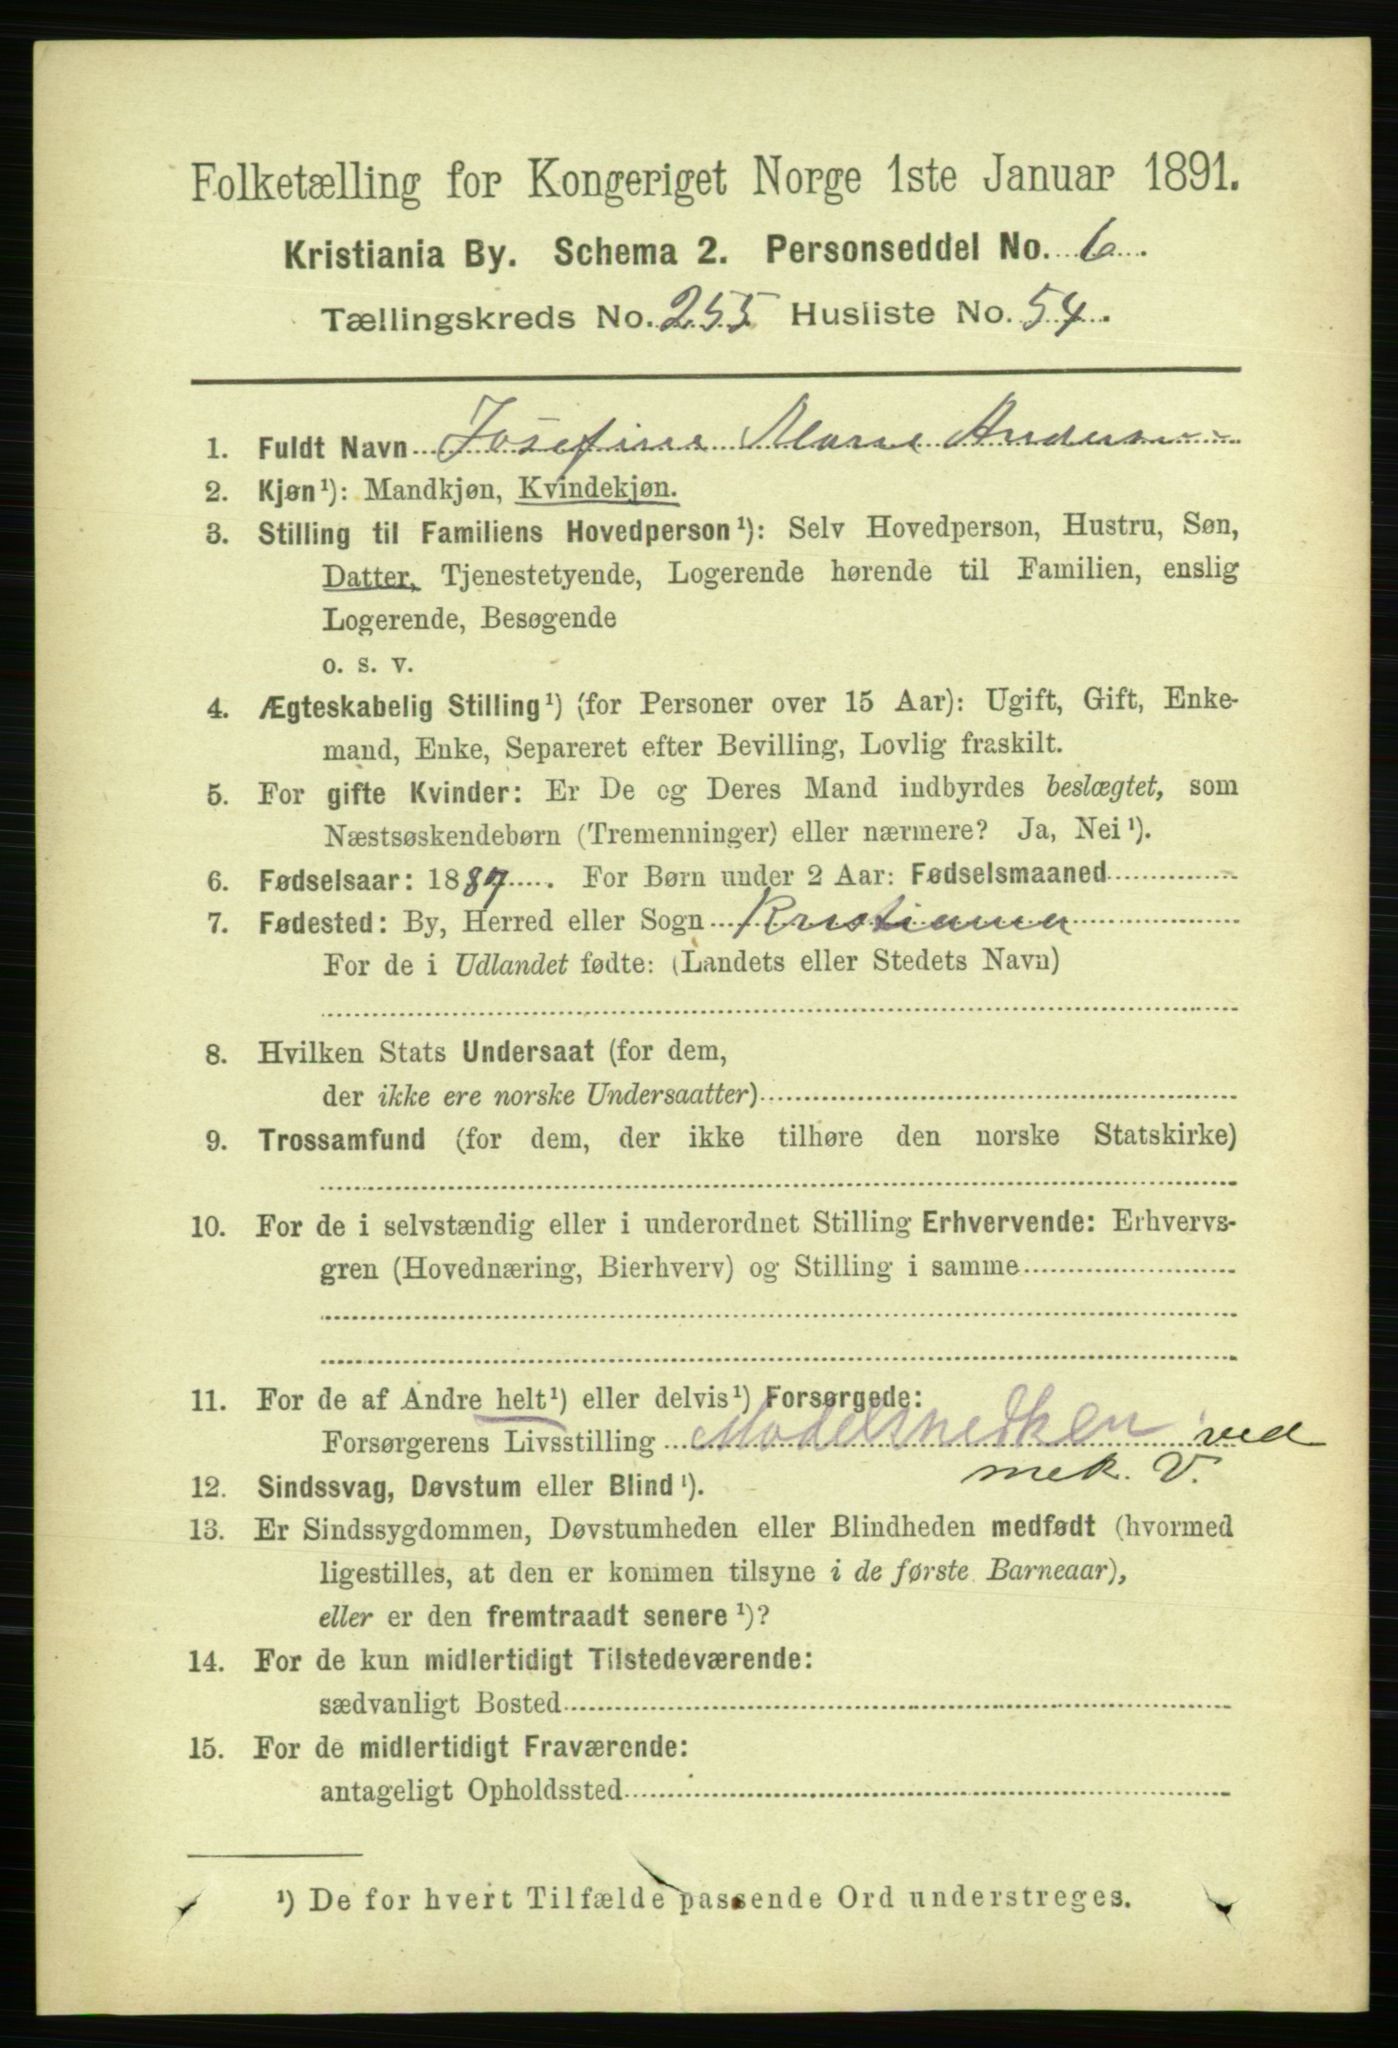 Folketælling for Kongeriget Norge 1ste Januar 1891.
Kristiania By. Schema 2. Personseddel No. 6.
Tællingskreds No. 255 Husliste No. 54.
1. Fuldt Navn Josefine Marie Andersen
2. Kjøn¹): Mandkjøn, Kvindekjøn.
3. Stilling til Familiens Hovedperson¹): Selv Hovedperson, Hustru, Søn,
Datter, Tjenestetyende, Logerende hørende til Familien, enslig
Logerende, Besøgende
o. s. v.
4. Ægteskabelig Stilling¹) (for Personer over 15 Aar): Ugift, Gift, Enke-
mand, Enke, Separeret efter Bevilling, Lovlig fraskilt.
5. For gifte Kvinder: Er De og Deres Mand indbyrdes beslægtet, som
Næstsøskendebørn (Tremenninger) eller nærmere? Ja, Nei¹).
6. Fødselsaar: 1887. For Børn under 2 Aar: Fødselsmaaned
7. Fødested: By, Herred eller Sogn Kristiania
For de i Udlandet fødte: (Landets eller Stedets Navn)
8. Hvilken Stats Undersaat (for dem,
der ikke ere norske Undersaatter)
9. Trossamfund (for dem, der ikke tilhøre den norske Statskirke)
10. For de i selvstændig eller i underordnet Stilling Erhvervende: Erhvervs-
gren (Hovednæring, Bierhverv) og Stilling i samme
11. For de af Andre helt¹) eller delvis¹) Forsørgede:
Forsørgerens Livsstilling Modelsnedker ved
mek. V.
12. Sindssvag, Døvstum eller Blind¹).
13. Er Sindssygdommen, Døvstumheden eller Blindheden medfødt (hvormed
ligestilles, at den er kommen tilsyne i de første Barneaar),
eller er den fremtraadt senere¹)?
14. For de kun midlertidigt Tilstedeværende:
sædvanligt Bosted
15. For de midlertidigt Fraværende:
antageligt Opholdssted
¹) De for hvert Tilfælde passende Ord understreges.